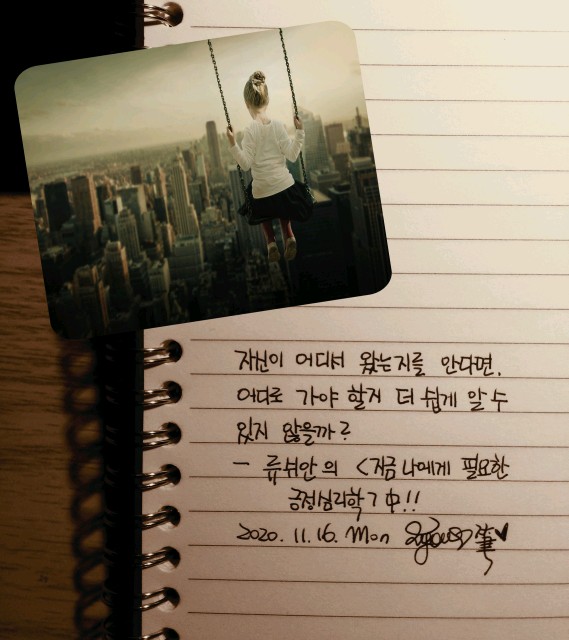 자신이 어디서 왔는지를 안다면,
어디로 가야 할지 더 쉽게 알 수
있지 않을까?
- 류쉬안의 <지금 나에게 필요한
긍정심리학> 中!!
2020. 11. 16. Mon 筆